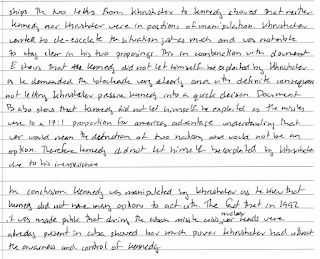 ships. The two letters from Khrushchev to Kennedy showed that neither
Kennedy nor Khrushchev were in positions of manipulation. Khrushchev
wanted to de-escalate the situation just as much and was not able
to stay clear in his two proposings. This in combination with document
E shows that Kennedy did not let himself be exploited by Khrushchev
as he demanded the blockade very clearly and with definite consequences
not letting Khrushchev pressure Kennedy into a quick decision. Document
B also show that Kennedy did not let himself be exploited as the missiles
were to a 17:1 proportion for american advantage understanding that
war would mean the destruction of two nations and would not be an
option. Therefore Kennedy did not let himself be exploited by Khrushchev
due to his
In conclusion Kennedy was manipulated by Khrushchev as he knew that
Kennedy did not have many options to act with. The fact that in 1992
it was made public that during the cuban missile crisis nuclear war heads were
already present in cuba showed how much power Khrushchev had without
the awareness and control of Kennedy.